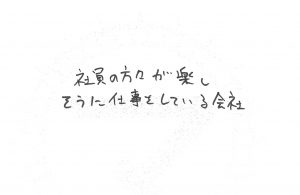 社員の方々が楽し
そうに仕事をしている会社